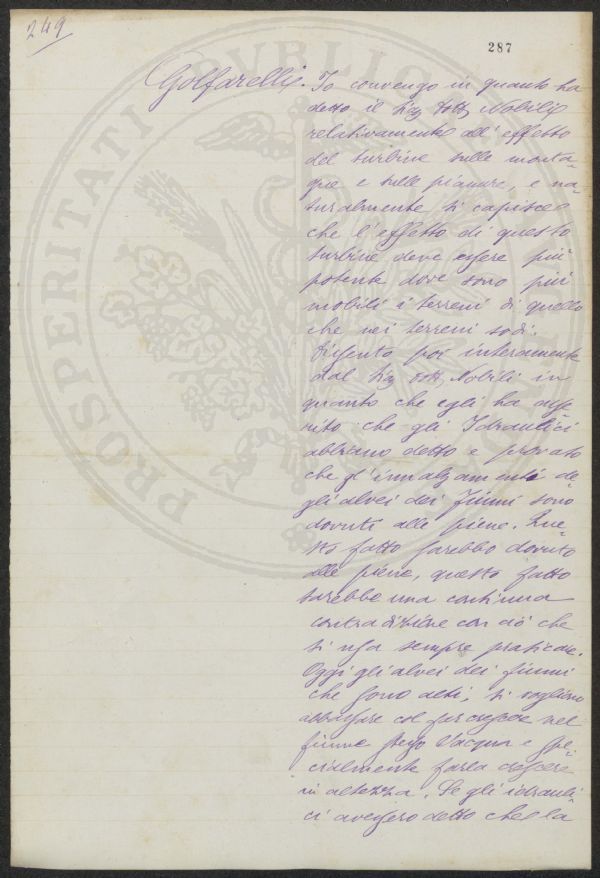 249
287
Golfarelli. Io convengo in quanto ha
detto il Sig Dott Nobili
relativamente all'effetto
del turbine sulle monta-
gne e sulle pianure, e na-
turalmente si capisce
che l'effetto di questo
turbine deve essere più
potente dove sono più
mobili i terreni di quello
che nei terreni sodi.
Dissento poi interamente
dal Sig Dott Nobili in
quanto che egli ha asse-
rito che gli Idraulici
abbiano detto e provato
che gl'innalzamenti de-
gli alvei dei fiumi sono
dovuti alle piene. Que-
sto fatto sarebbe dovuto
alle piene, questo fatto
sarebbe una continua
contradizione con ciò che
si usa sempre praticare.
Oggi gli alvei dei fiumi
che sono alti, si vogliono
abbassare col far crescere nel
fiume stesso l'acqua e spe-
cialmente farla crescere
in altezza. Se gli idrauli-
ci avessero detto che la
PROSPERITATI PVBLICAE